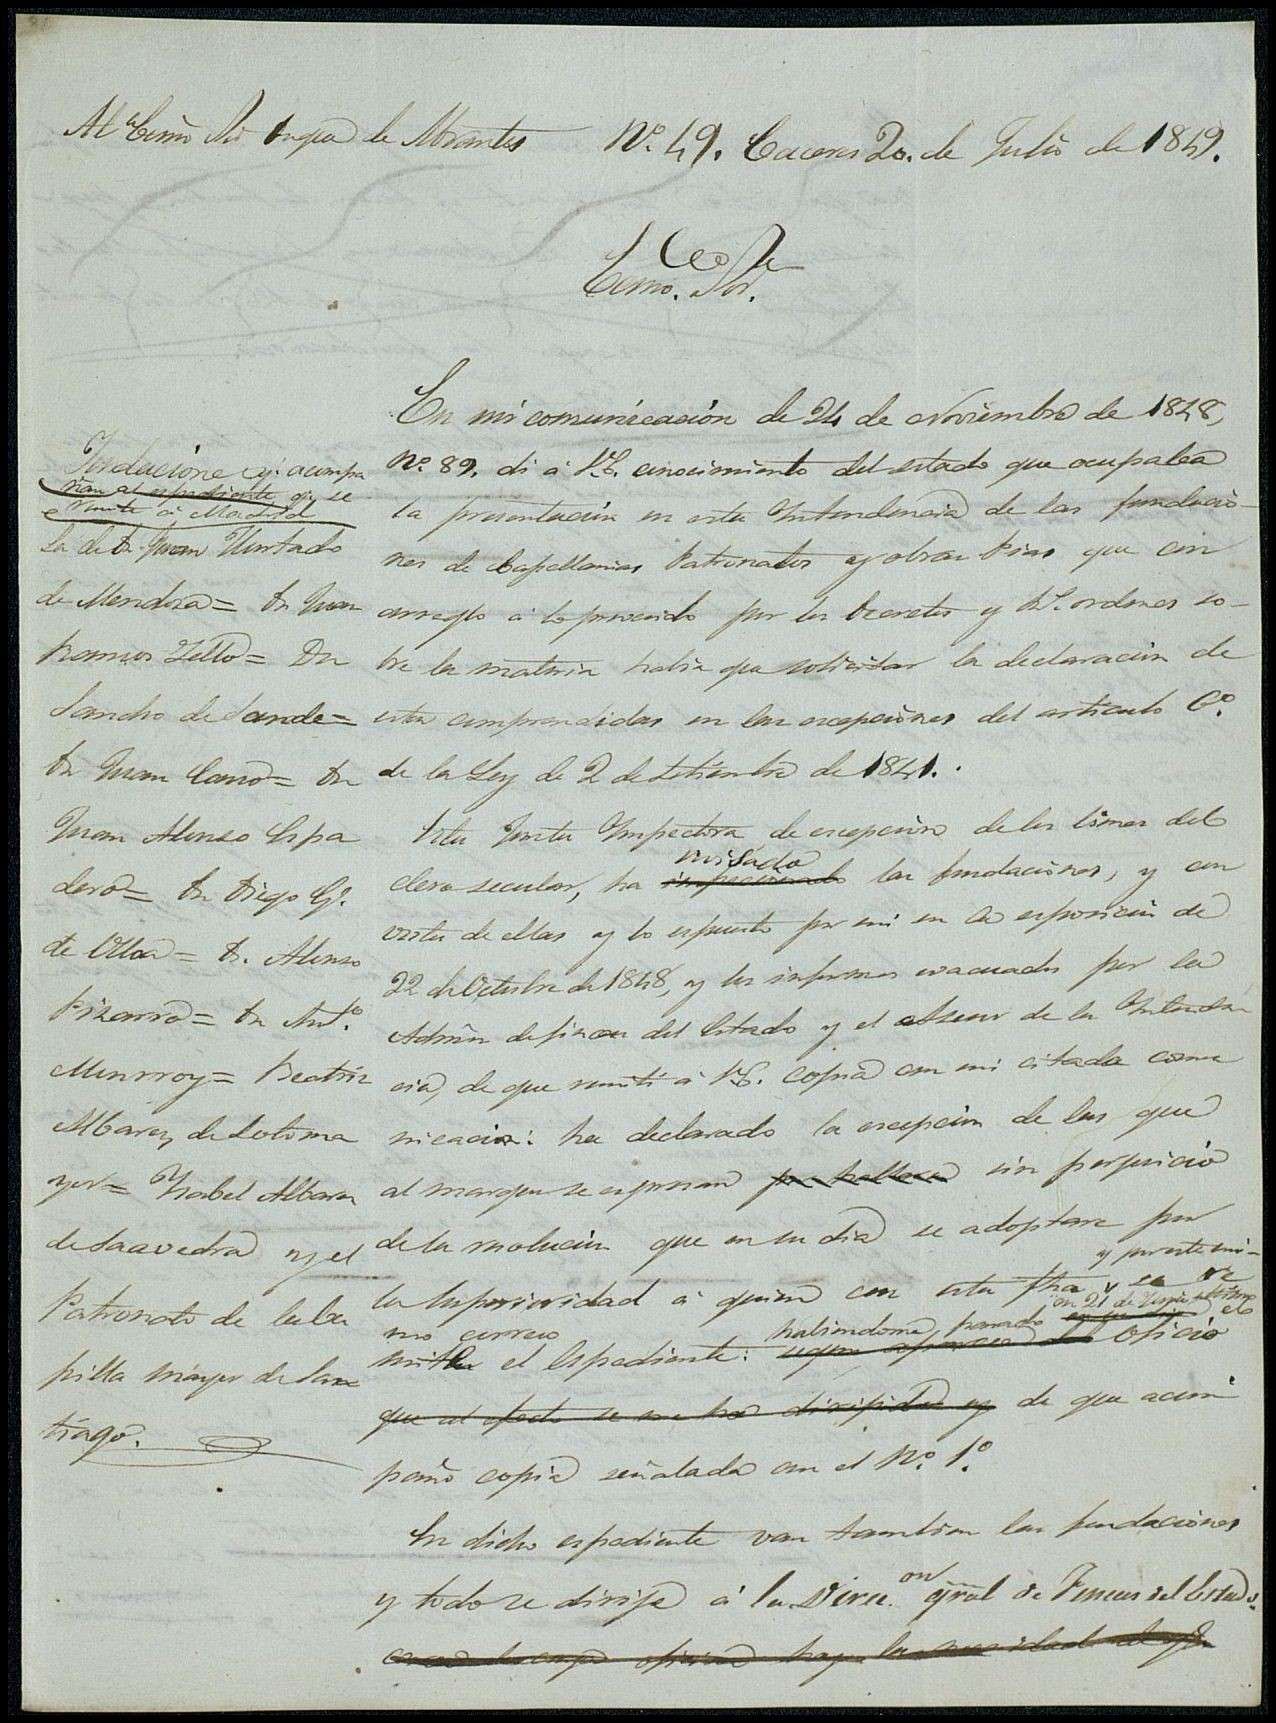 Al Excmo Sr Duque de Abrantes Nº. 49. Caceres 20. de Julio de 1849.
Excmo. Sor.
En mi comunicacion de 24 de Noviembre de 1848,
Nº. 89. di á V.E. conocimiento del estado que ocupaba
la presentacion en esta Intendencia de las fundacio-
nes de Capellanias Patronatos y obras Pias que con
arreglo á lo prevenido por los Decretos y Rs. ordenes so-
bre la materia habia que solicitar la declaracion de
estar comprendidas en las excepciones del articulo 6º.
de la Ley de 2 de Setiembre de 1841.
Esta Junta Inspectora de excepcion de los bienes del
clero secular, ha inspeccionado visado las fundaciones, y con
vista de ellas y lo espuesto por mi en la esposicion de
22 de Octubre de 1848, y los informes evacuados por la
Admon de fincas del Estado y el Asesor de la Intenden
cia, de que remití á V.E. copia con mi citada comu
nicacion: ha declarado la excepcion de las que
al margen se espresan sin perjuicio
de la resolucion que en su dia se adoptare por
la Superioridad á quien con esta fha y por este mi-
mo correo se re
mite el Espediente: habiendome pasado en 21 de el Oficio
que al efecto se me ha dirigido y de que acom
paño copia señalada con el Nº. 1º.
En dicho espediente van tambien las fundaciones
y todo se dirije á la Direcc.on gral de Fincas del Estado.
Fundaciones q.e acompa
ñan al espediente q.e se
remite á Madrid
La de Dn Juan Hurtado
de Mendoza = Dn Juan
Ramos Tello = Dn
Sancho de Sande =
Dn Juan Cano = Dn
Juan Alonso Espa
dero = Dn Diego Gª.
de Ulloa = D. Alonso
Pizarro = Dn Antº.
Monrroy = Beatriz
Albarez de Sotoma
yor = Ysabel Albarez
de Saavedra y el
Patronato de la Ca
pilla mayor de San
tiago.